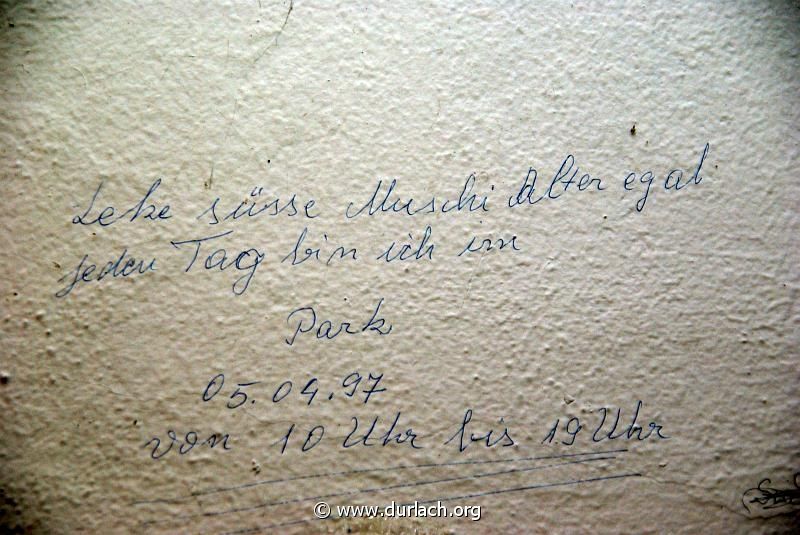 Leke süsse Muschi Alter egal
jeden Tag bin ich im
Park
05.04.97
von 10 Uhr bis 19 Uhr
© www.durlach.org